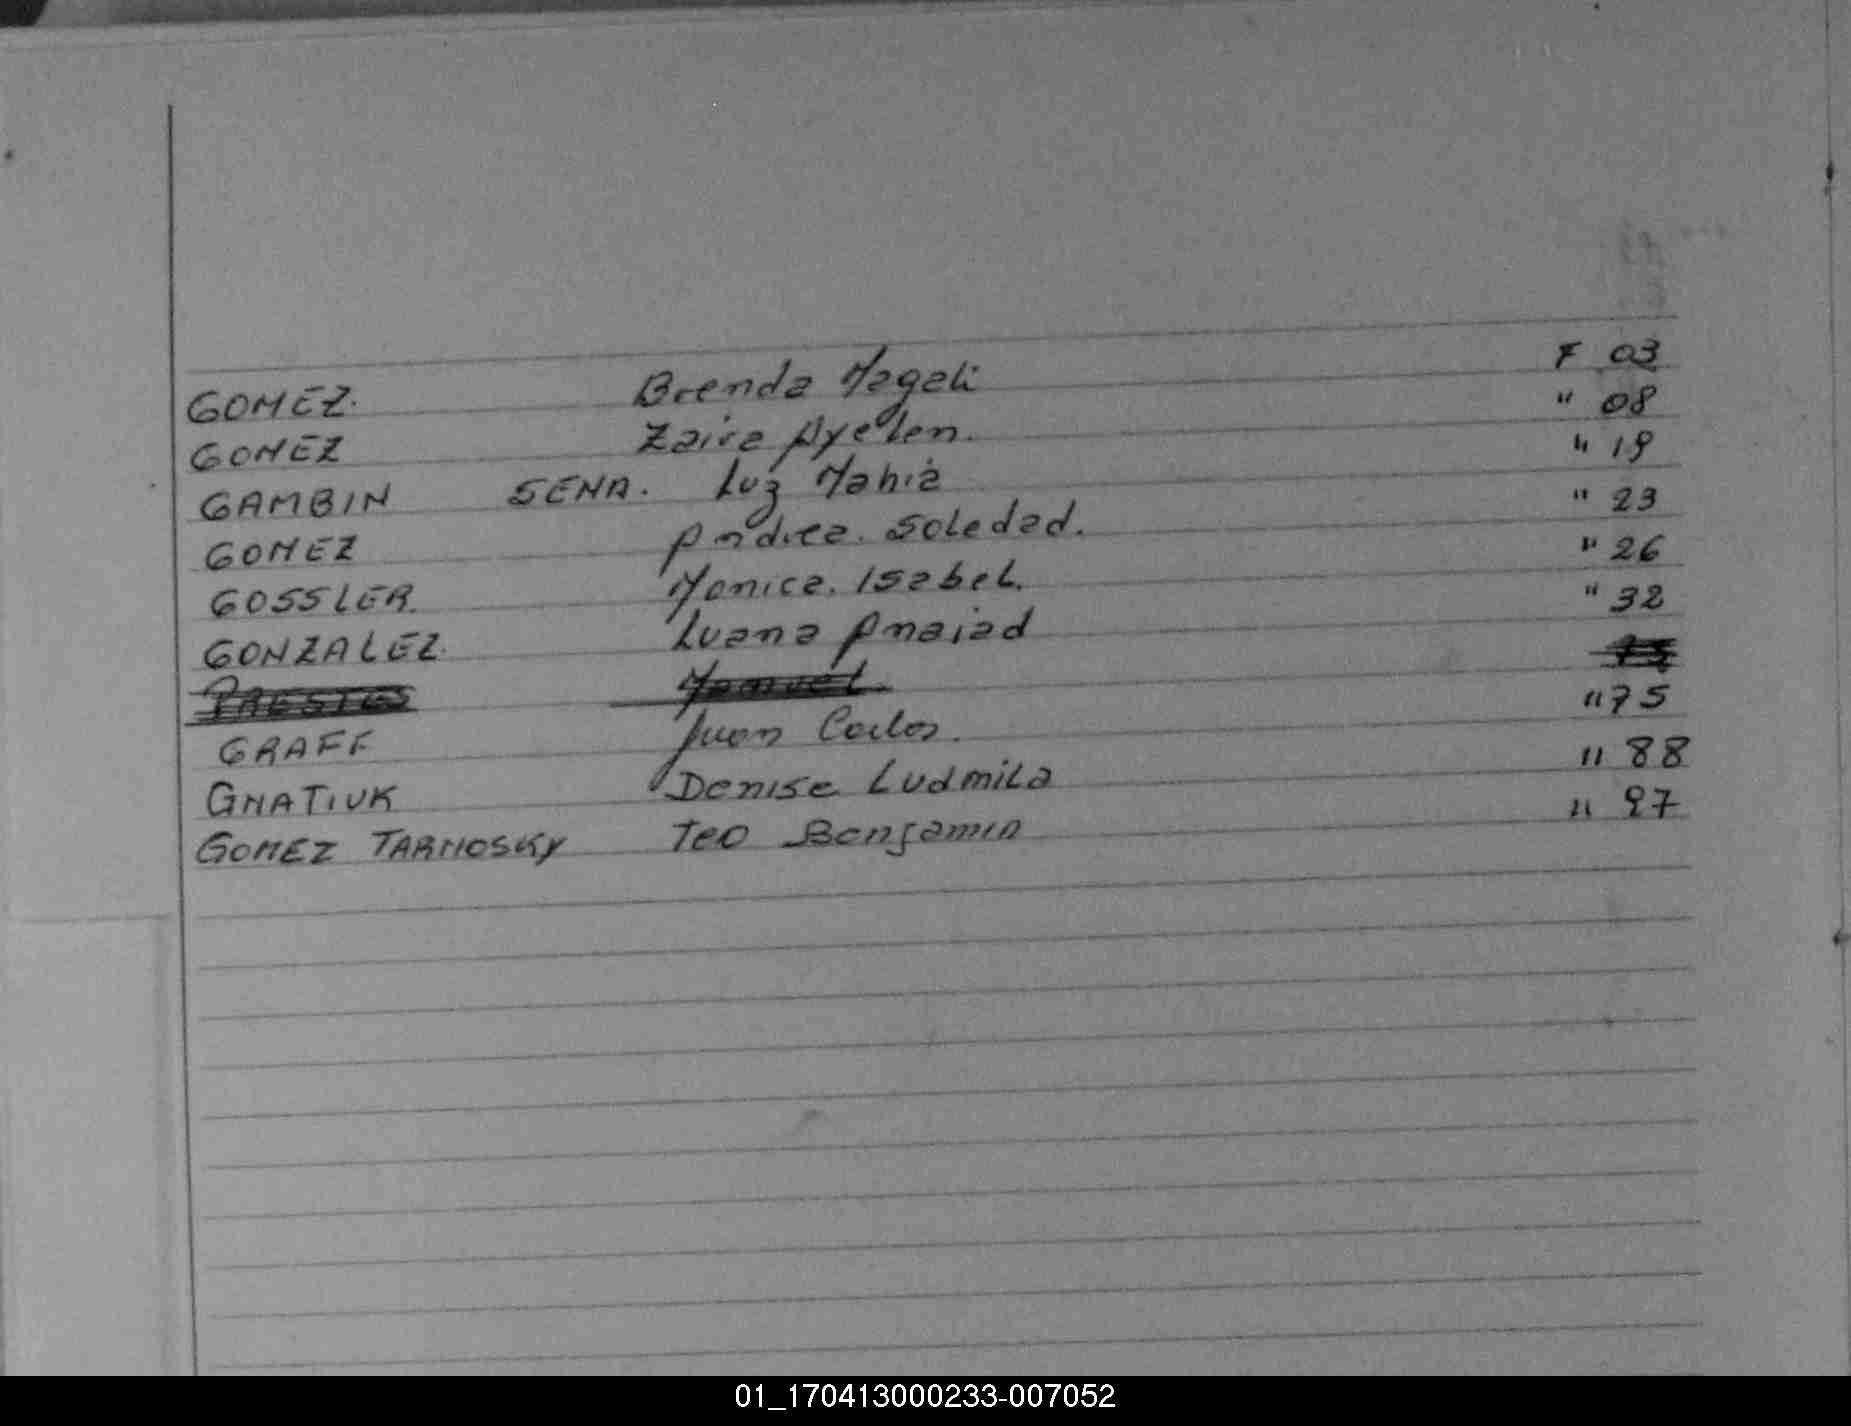 GOMEZ. Brenda Magali F 03
GOMEZ Zaira Ayelen. " 08
GAMBIN SENA. Luz Mahia " 19
GOMEZ Andrea. Soledad. " 23
GOSSLER. Monica. Isabel. " 26
GONZALEZ. Luana Anaiad " 32
PRESTES Manuel. 75
GRAFF Juan Carlos. " 75
GNATIUK Denise Ludmila " 88
GOMEZ TARNOSKY Teo Benjamin " 97
01_170413000233-007052